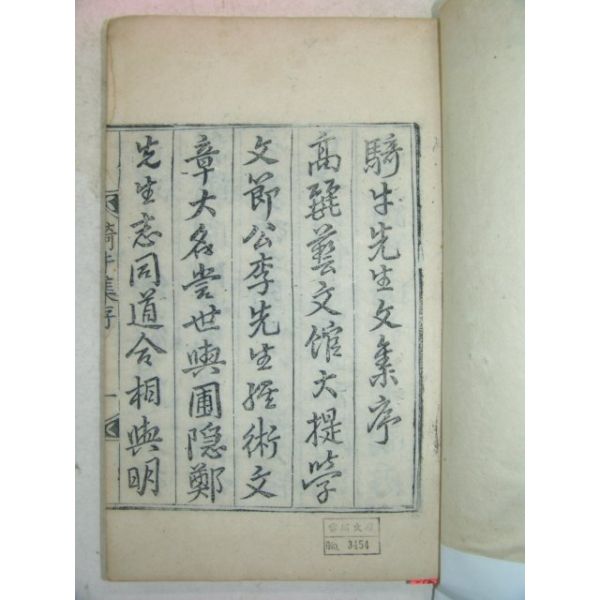 騎牛先生文集序
高麗藝文館大提學
文節公李先生經術文
章大名당世與圃隱鄭
先生志同道合相與明
騎牛集序
一
No. 3454